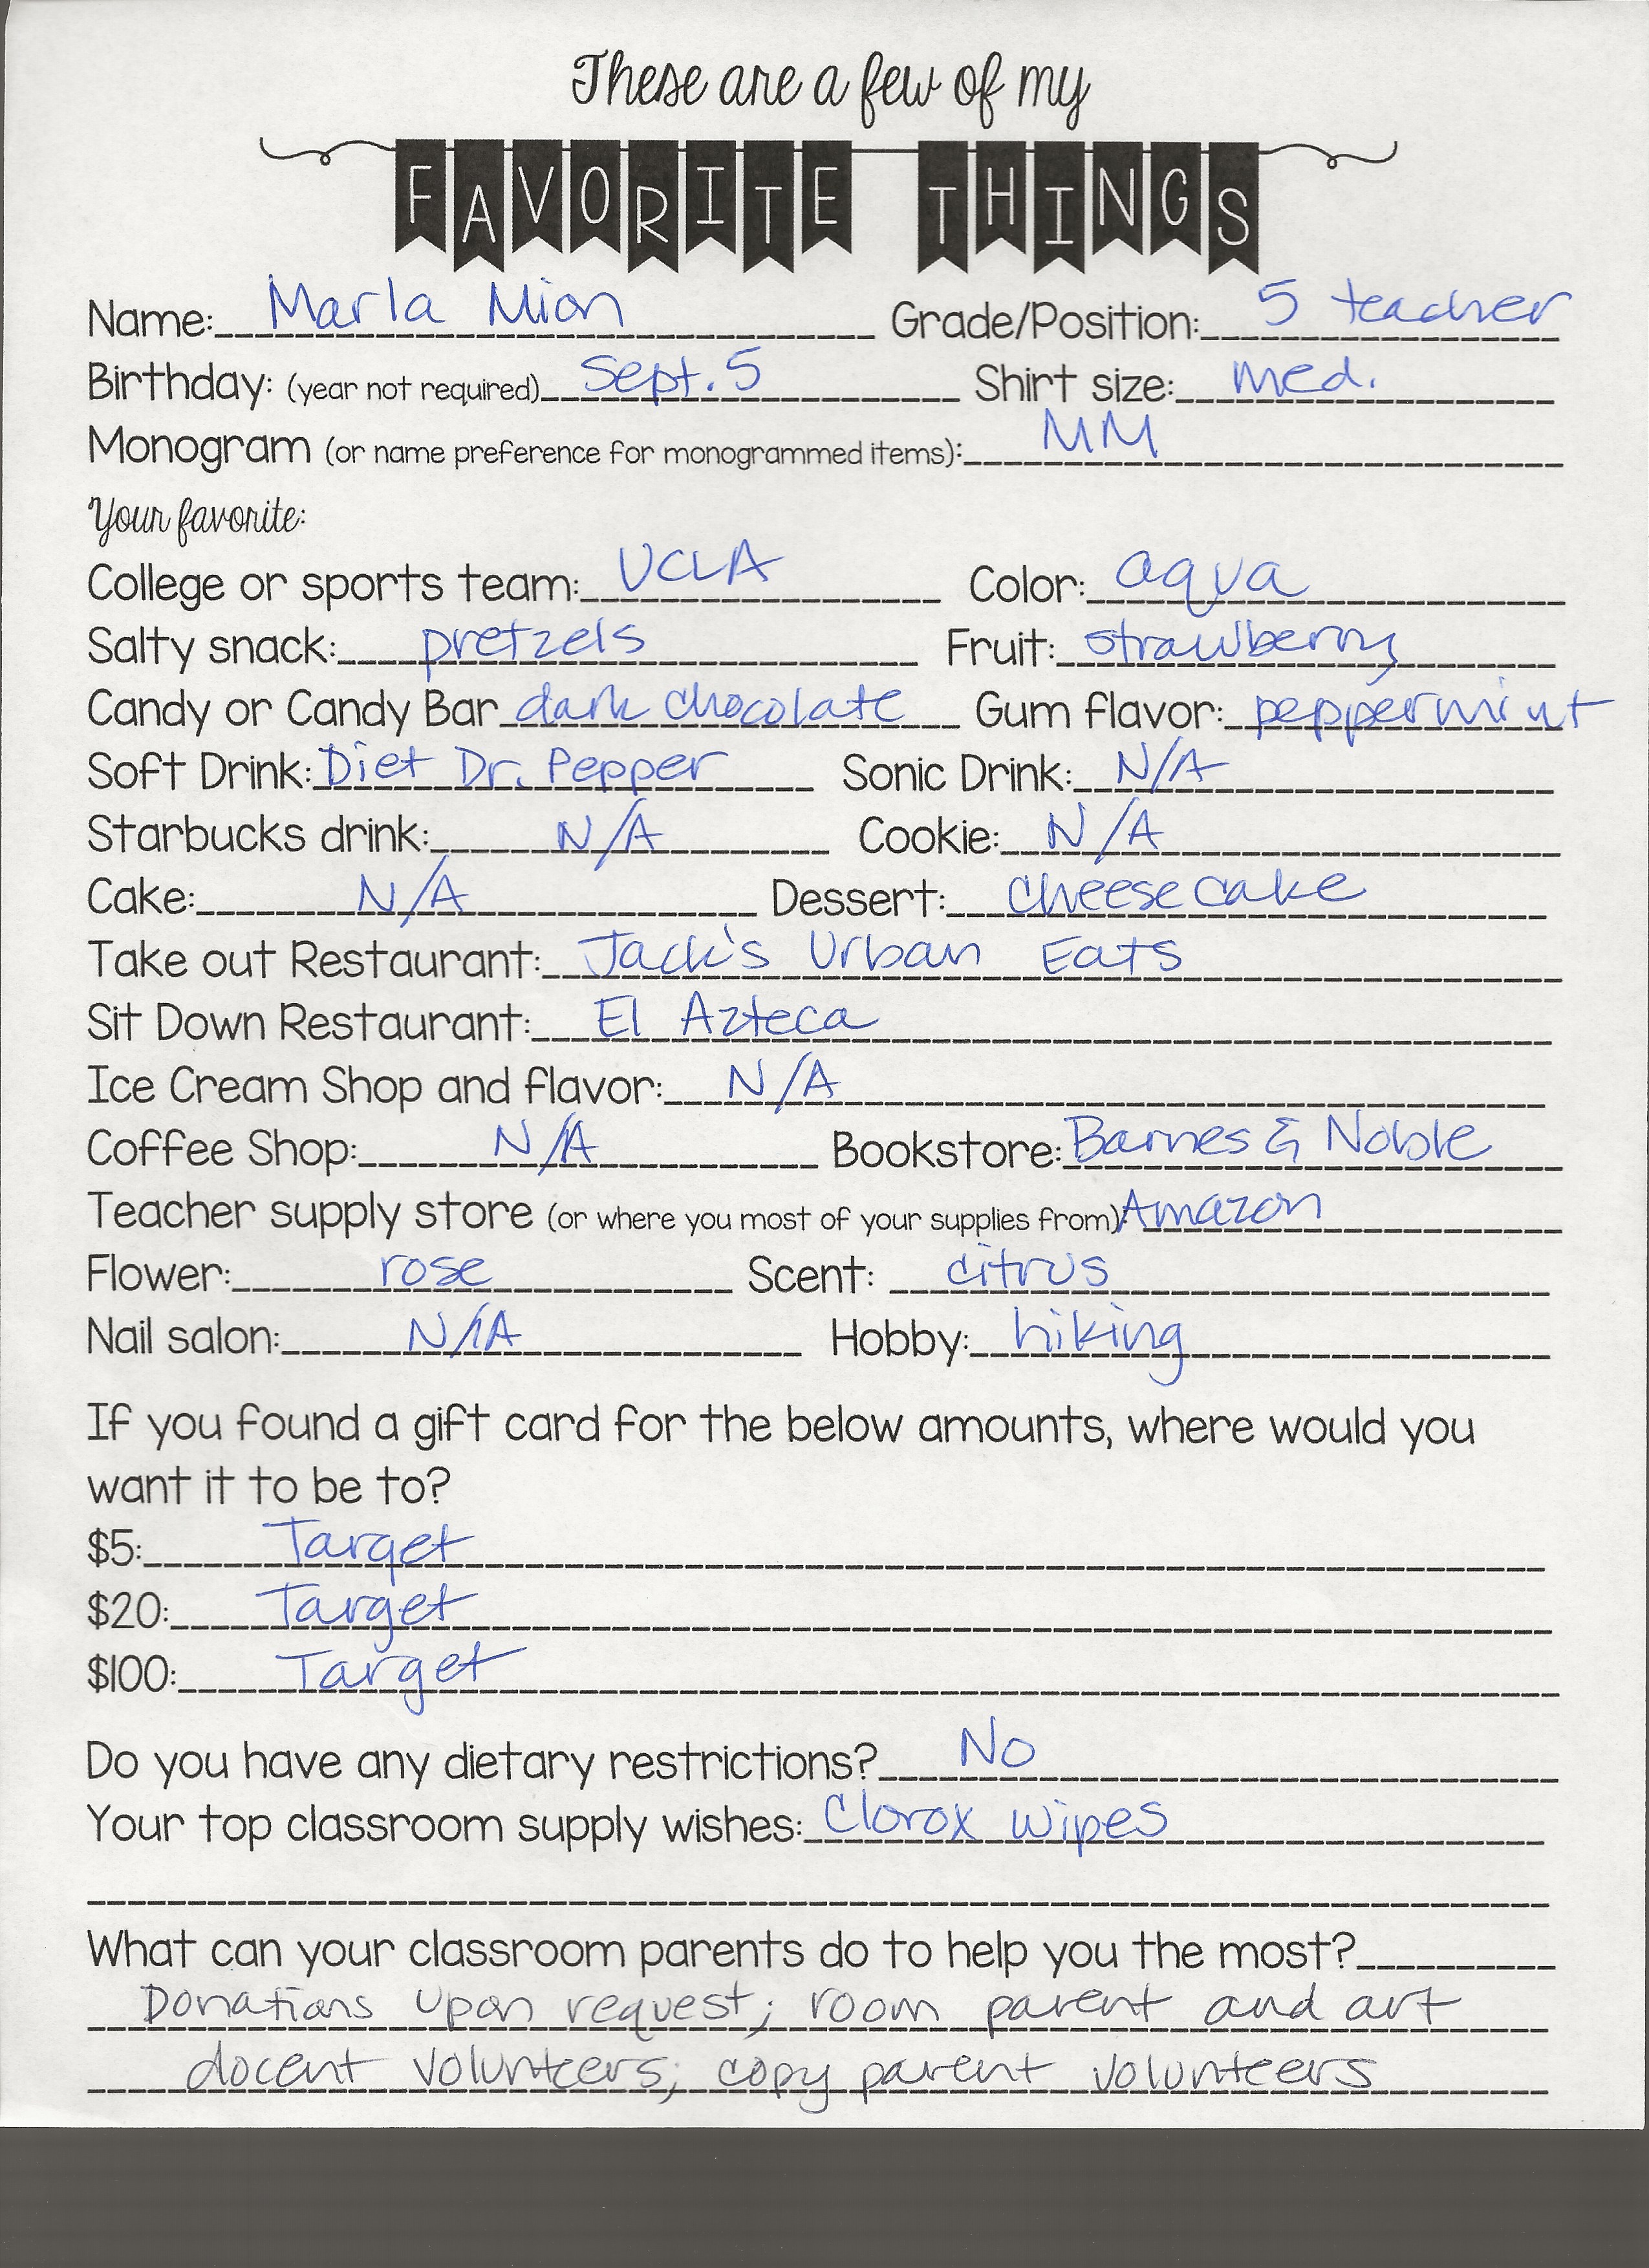 These are a few of my
FAVORITE THINGS
Name: Marla Mion Grade/Position: 5 teacher
Birthday: (year not required) Sept. 5 Shirt size: med.
Monogram (or name preference for monogrammed items): MM
Your favorite:
College or sports team: UCLA Color: aqua
Salty snack: pretzels Fruit: strawberry
Candy or Candy Bar dark chocolate Gum flavor: peppermint
Soft Drink: Diet Dr. Pepper Sonic Drink: N/A
Starbucks drink: N/A Cookie: N/A
Cake: N/A Dessert: cheesecake
Take out Restaurant: Jack's Urban Eats
Sit Down Restaurant: El Azteca
Ice Cream Shop and flavor: N/A
Coffee Shop: N/A Bookstore: Barnes & Noble
Teacher supply store (or where you most of your supplies from): Amazon
Flower: rose Scent: citrus
Nail salon: N/A Hobby: hiking
If you found a gift card for the below amounts, where would you
want it to be to?
$5: Target
$20: Target
$100: Target
Do you have any dietary restrictions? No
Your top classroom supply wishes: Clorox wipes
What can your classroom parents do to help you the most?
Donations upon request; room parent and art
docent volunteers; copy parent volunteers